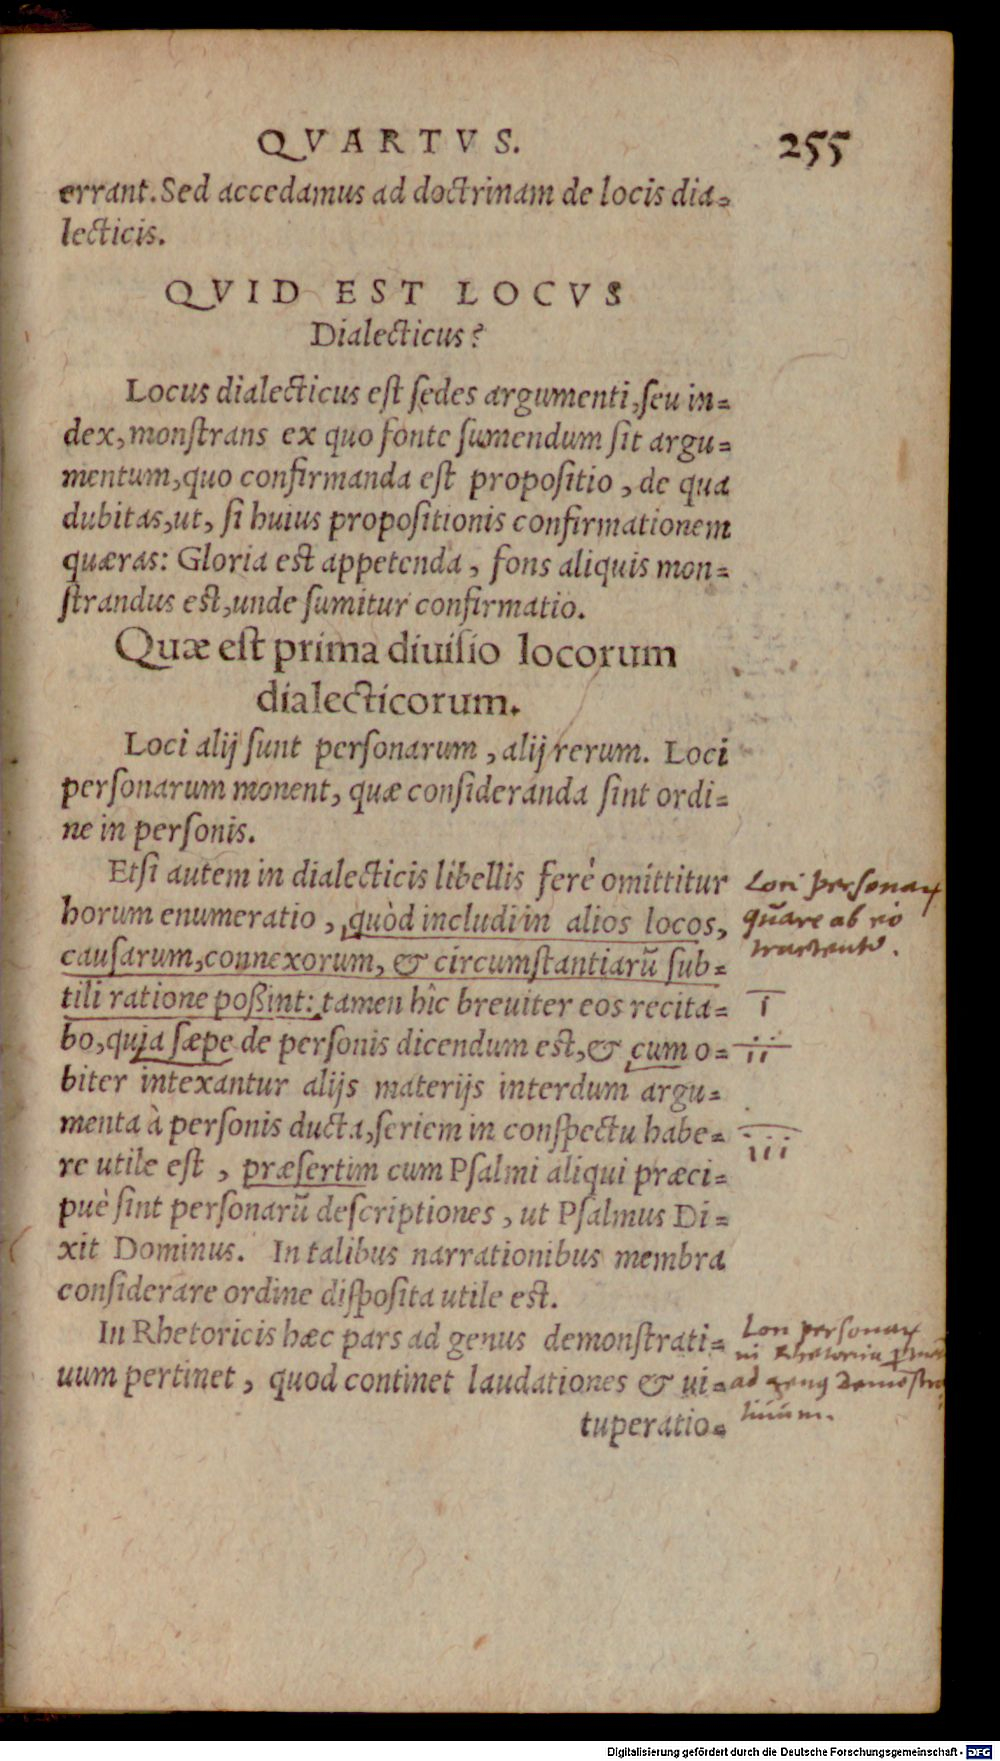 QVARTVS. 255
errant. Sed accedamus ad doctrinam de locis dia-
lecticis.
QVID EST LOCVS
Dialecticus?
Locus dialecticus est ſedes argumenti, ſeu in-
dex, monſtrans ex quo fonte ſumendum ſit argu-
mentum, quo confirmanda eſt propoſitio, de qua
dubitas, ut, ſi huius propoſitionis confirmationem
quæras: Gloria est appetenda, fons aliquis mon-
ſtrandus eſt, unde ſumitur confirmatio.
Quæ eſt prima diuiſio locorum
dialecticorum.
Loci alij ſunt perſonarum, alij rerum. Loci
perſonarum monent, quæ conſideranda ſint ordi-
ne in perſonis.
Etſi autem in dialecticis libellis ferè omittitur
horum enumeratio, quòd includi in alios locos,
cauſarum, connexorum, & circumſtantiarũ ſub-
tili ratione poßint: tamen hîc breuiter eos recita-
bo, quia ſæpe de perſonis dicendum eſt, & cum o-
biter intexantur alijs materijs interdum argu-
menta à perſonis ducta, ſeriem in conſpectu habe-
re utile eſt, præſertim cum Pſalmi aliqui præci-
puè ſint perſonarũ deſcriptiones, ut Pſalmus Di-
xit Dominus. In talibus narrationibus membra
conſiderare ordine diſpoſita utile est.
In Rhetoricis hæc pars ad genus demonſtrati-
uum pertinet, quod continet laudationes & ui-
tuperatio-
Loci personarꝝ
quare ab
i
ii
iii
Loci personarꝝ
in
ad genꝰ
tiuum.
Digitalisierung gefördert durch die Deutsche Forschungsgemeinschaft - DFG